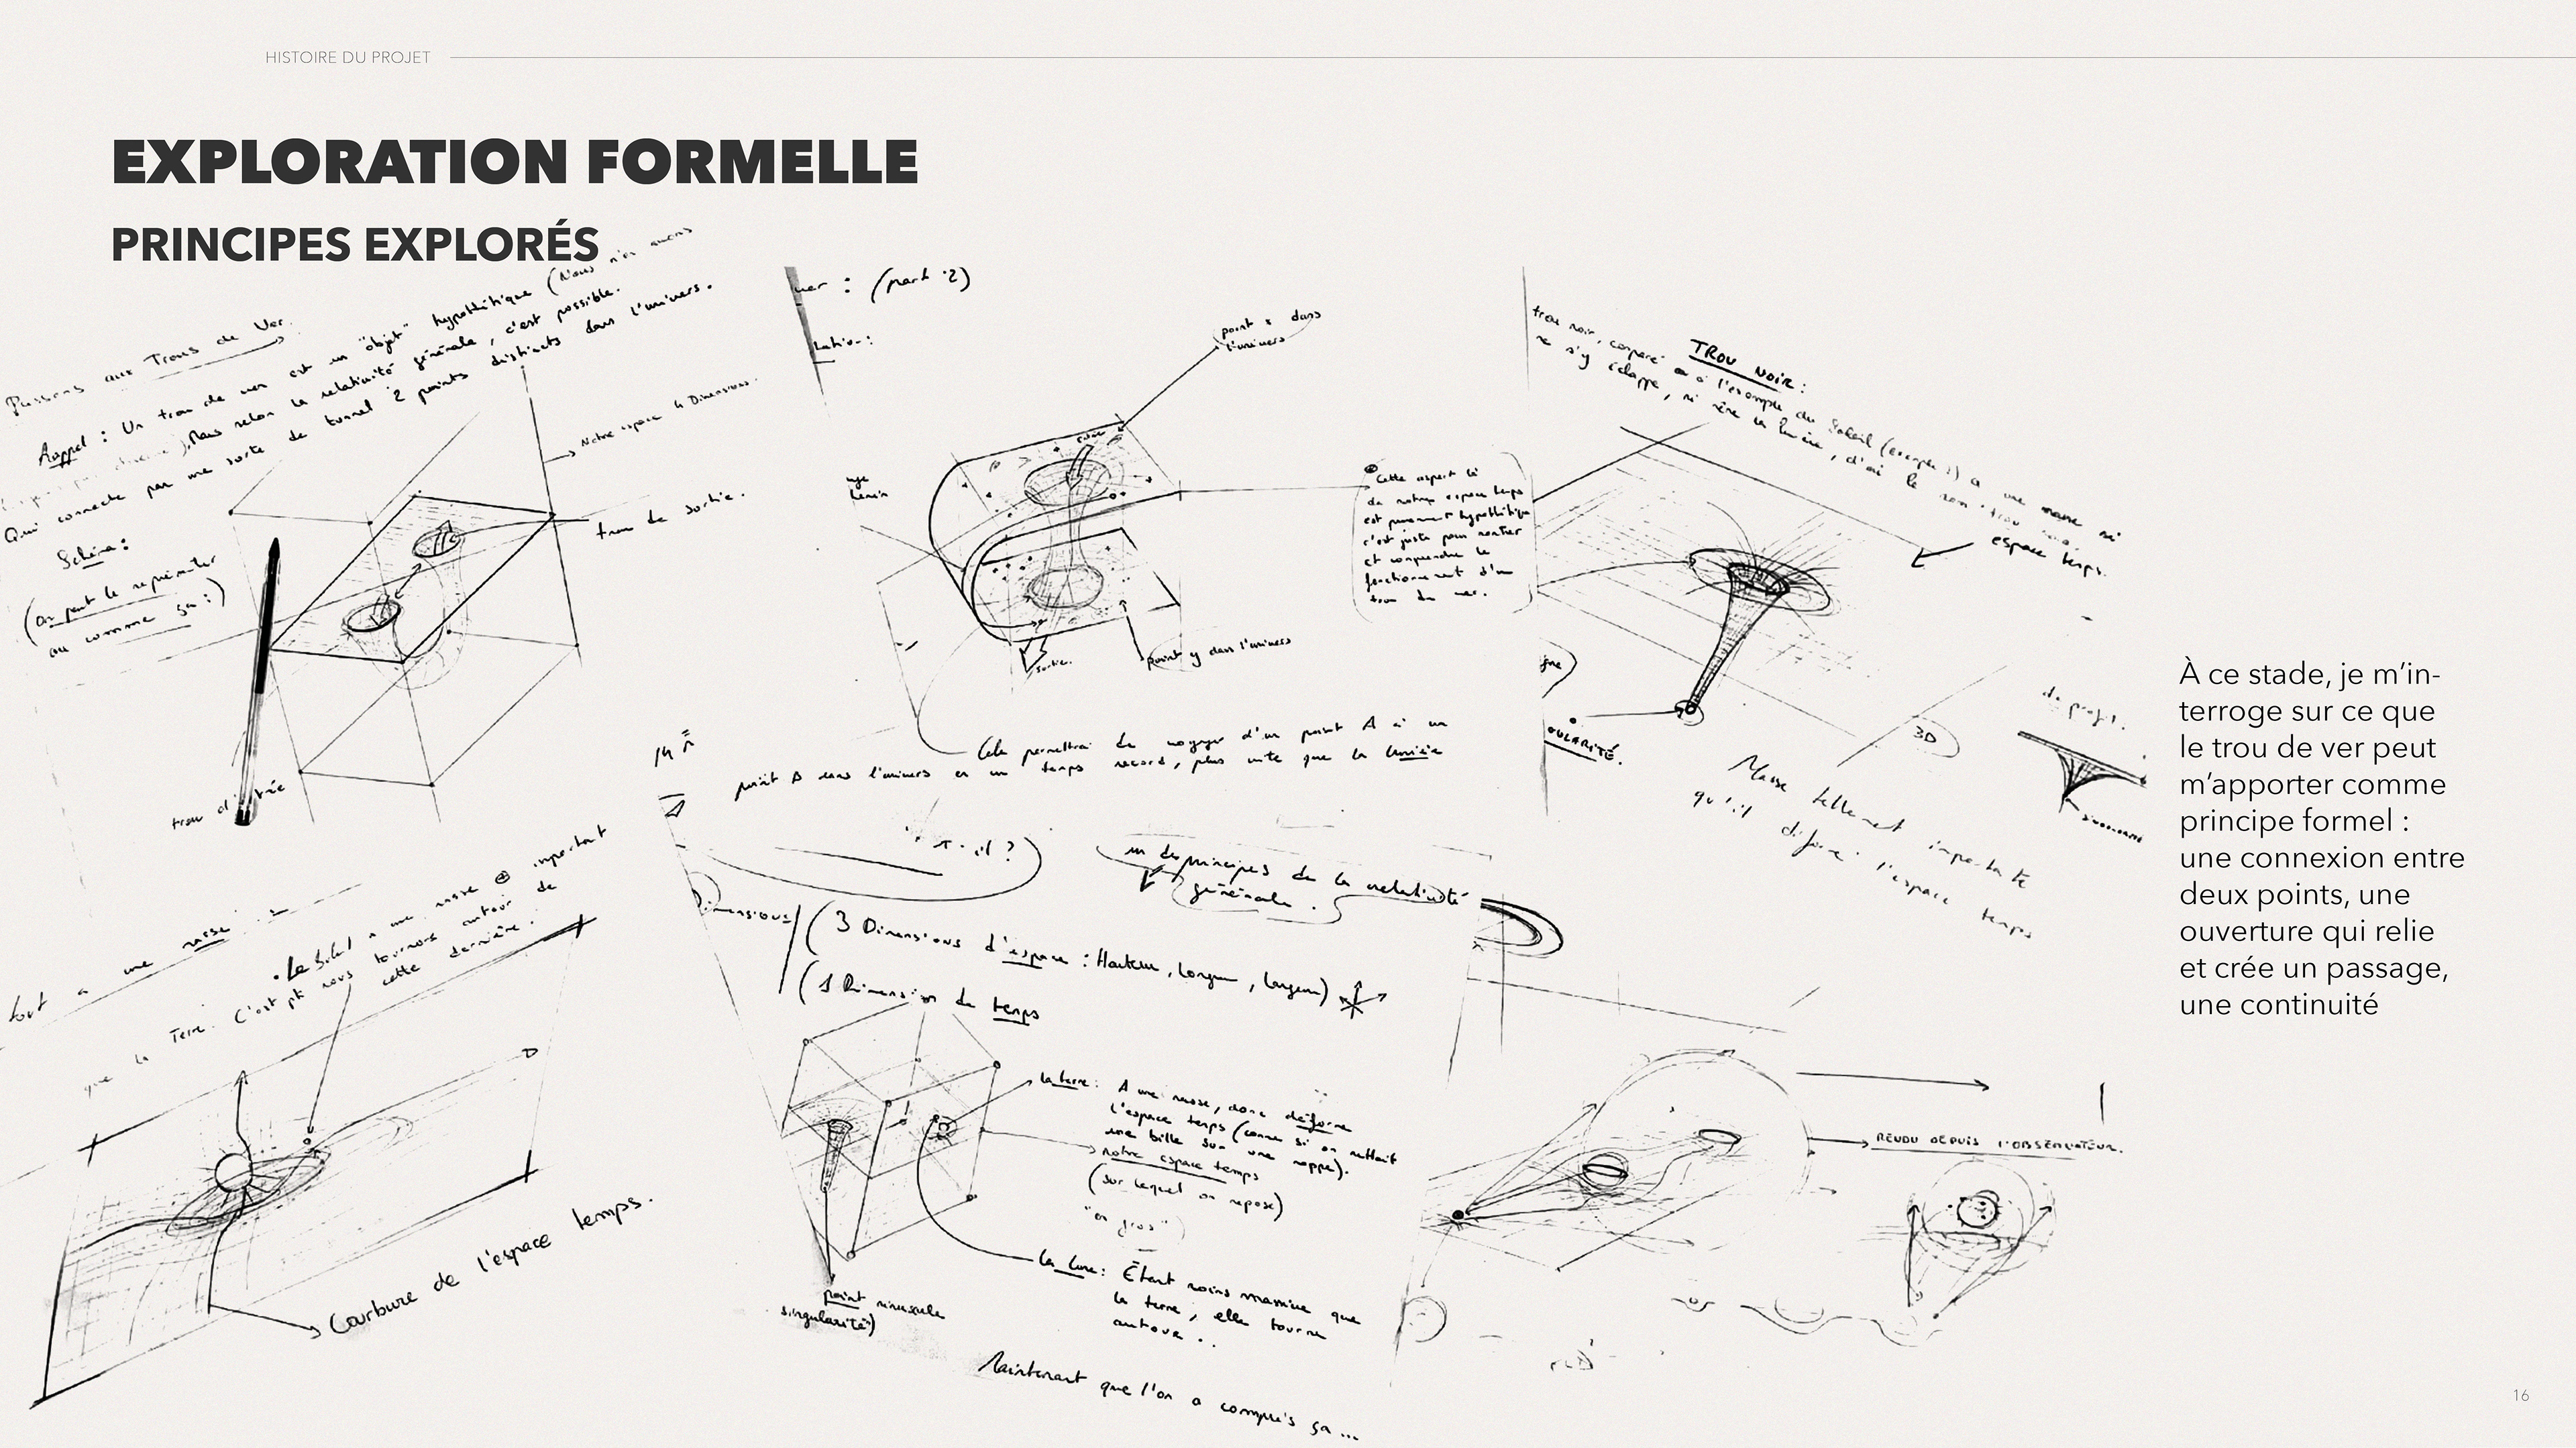 HISTOIRE DU PROJET
EXPLORATION FORMELLE
PRINCIPES EXPLORÉS
(Nous n'en avons
Passons aux Trous de Ver.
Rappel : Un trou de ver est un "objet" hypothétique
), Mais selon la relativité générale, c'est possible.
Qui connecte par une sorte de tunnel 2 points distincts dans l'univers.
Schéma :
(on peut le représenter
ou comme ça :)
Notre espace 4 Dimensions.
trou de sortie.
trou d'
ver : (part 2)
point x dans
l'univers
Cette aspect là
de notre espace temps
est purement hypothétique
c'est juste pour montrer
et comprendre le
fonctionnement d'un
trou de ver.
sortie.
point y dans l'univers
Cela permettrai de voyager d'un point A à un
point B dans l'univers en un temps record, plus vite que la lumière
TROU NOIR :
trou noir, comparé à l'exemple du Soleil (exemple 1) a une masse si
ne s'y échappe, ni même la lumière, d'où le nom "trou
espace temps.
3D
de profil.
GULARITÉ.
Masse tellement importante
qu'il déforme l'espace temps
À ce stade, je m'in-
terroge sur ce que
le trou de ver peut
m'apporter comme
principe formel :
une connexion entre
deux points, une
ouverture qui relie
et crée un passage,
une continuité
tout a une masse :
• Le Soleil a une masse ⊕ important
que la Terre. C'est pk nous tournons autour de
cette dernière.
Courbure de l'espace temps.
un des principes de la relativité
générale.
Dimensions
(3 Dimensions d'espace : Hauteur, Longueur, largeur)
(1 Dimension de temps
La terre : A une masse, donc déforme
l'espace temps (comme si on mettait
une bille sur une nappe).
notre espace temps
(sur lequel on repose)
"en gros"
La Lune : Étant moins massive que
la terre, elle tourne
autour.
point minuscule
singularité)
Maintenant que l'on a compris ça ...
RENDU DEPUIS L'OBSERVATEUR.
16